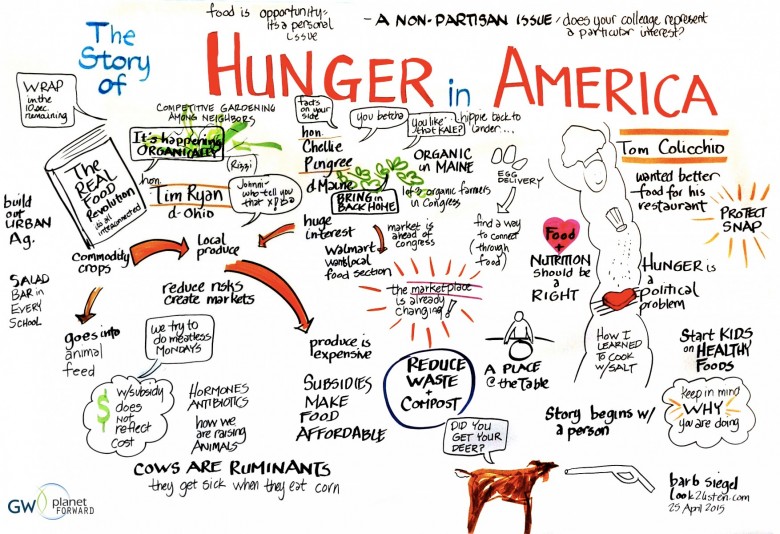 food is opportunity
its a personal
issue
- A NON-PARTISAN ISSUE / does your colleage represent
a particular interest?
The
Story
of
HUNGER in AMERICA
WRAP
in the
10 sec.
remaining
COMPETITIVE GARDENING
AMONG NEIGHBORS
It's happening
ORGANICALLY
(Rizzi)
hon.
Tim Ryan
d-Ohio
Johnni-
who-tell you
that
The
REAL
FOOD
Revolution
is all
interconnected
facts
on your
side
hon.
Chellie
Pingree
d Maine
you betcha
you like
that KALE?
hippie back to
under...
ORGANIC
in MAINE
BRING in
BACK HOME
organic farmers
in Congress
EGG
DELIVERY
find a way
to connect
(through
food)
Tom Colicchio
wanted better
food for his
restaurant
PROTECT
SNAP
build
out
URBAN
Ag.
Commodity
crops
Local
produce
huge
interest
Walmart
want local
food section
market is
ahead of
congress
Food
+
NUTRITION
should be
a
RIGHT
HUNGER is
a
Political
problem
SALAD
BAR in
EVERY
SCHOOL
reduce risks
create markets
the marketplace
is already
changing!
goes into
animal
feed
we try to
do meatless
MONDAYS
produce is
expensive
SUBSIDIES
MAKE
FOOD
AFFORDABLE
REDUCE
WASTE
+
COMPOST
A PLACE
@ the Table
HOW I
LEARNED
TO COOK
W/SALT
Start KIDS
on HEALTHY
FOODS
$
w/subsidy
does
not
reflect
cost
HORMONES
ANTIBIOTICS
how we
are raising
ANIMALS
Story begins w/
a person
keep in mind
WHY
you are doing
COWS ARE RUMINANTS
they get sick when they eat corn
DID YOU
GET YOUR
DEER?
barb siegel
look2listen.com
25 April 2015
GW planet
FORWARD